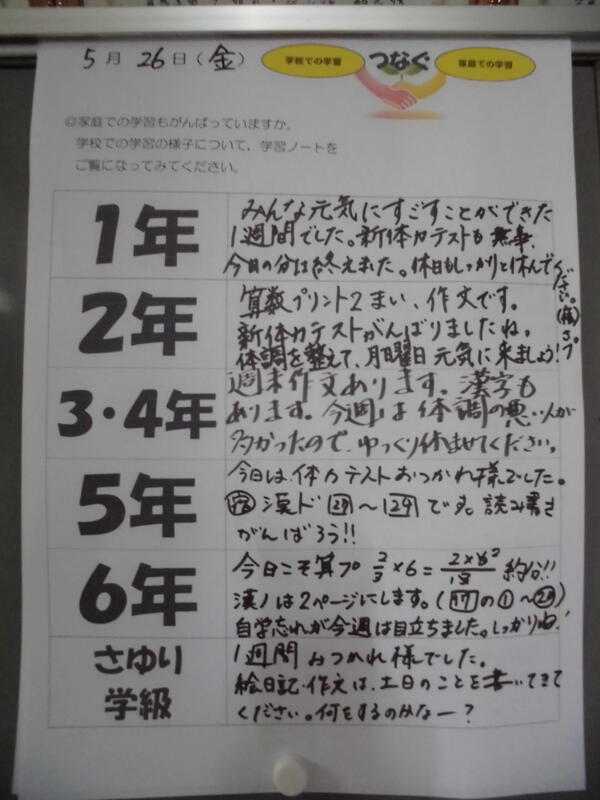 5月26日(金)
学校での学習
つなぐ
家庭での学習
◎家庭での学習もがんばっていますか。
学校での学習の様子について、学習ノートを
ご覧になってみてください。
1年
みんな元気にすごすことができた
1週間でした。新体力テストも無事、
今日の分は終えました。休日もしっかりと休んで
ださい。
2年
算数プリント2まい、作文です。
新体力テストがんばりましたね。
体調を整えて、月曜日元気に来ましょう!
3・4年
週末作文あります。漢字も
あります。今週は体調の悪い人が
多かったので、ゆっくり休ませてください。
5年
今日は、体力テストおつかれ様でした。
漢ド 27 〜 29 です。読み書き
がんばろう!!
6年
今日こそ算プ 2/3×6= 約分!!
漢ノは2ページにします。(17の①〜
自学忘れが今週は目立ちました。しっかりね!
さゆり
学級
1週間おつかれ様でした。
絵日記・作文は、土日のことを書いてきて
ください。何をするのかなー?